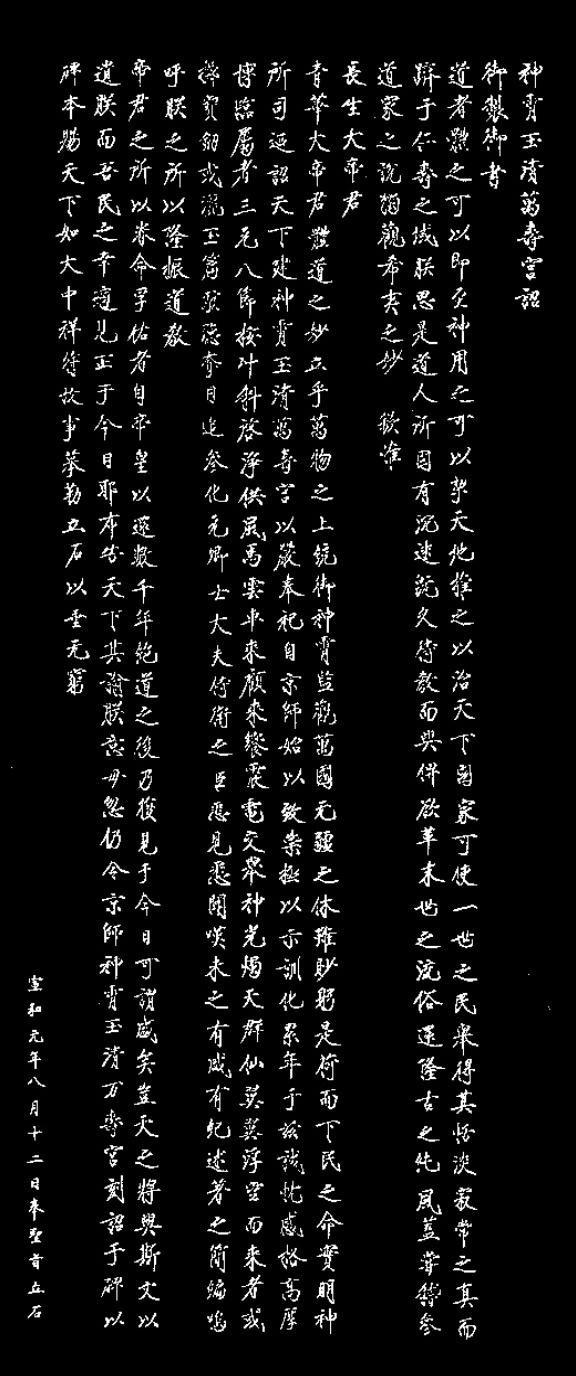 神霄玉清萬壽宮詔
御製御書
道者體之可以即至神用之可以挈天地推之以治天下國家可使一世之民舉得其恬淡寂常之真而
躋于仁壽之域朕思是道人所固有沉迷既久待教而興俾欲革末世之流俗還隆古之純風蓋嘗稽參
道家之說獨觀希夷之妙 欽惟
長生大帝君
青華大帝君體道之妙立乎萬物之上統御神霄監觀萬國无疆之休雖眇躬是荷而下民之命實明神
所司迺詔天下建神霄玉清萬壽宮以嚴奉祀自京師始以致崇極以示訓化累年于茲誠忱感格高厚
博臨屬者三元八節按沖科啓淨供風馬雲車來顧來饗震電交舉神光燭天群仙翼翼浮空而來者或
擲寶劒或洒玉篇駭聽奪目追參化元卿士大夫侍衛之臣悉見悉聞嘆未之有咸有紀述著之簡編嗚
呼朕之所以隆振道教
帝君之所以眷命孚佑者自帝皇以還數千年絕道之後乃復見于今日可謂盛矣豈天之將興斯文以
遺朕而吾民之幸適見正于今日耶布告天下其諭朕意毋忽仍令京師神霄玉清万壽宮刻詔于碑以
碑本賜天下如大中祥符故事摹勒立石以垂无窮
宣和元年八月十二日奉聖旨立石